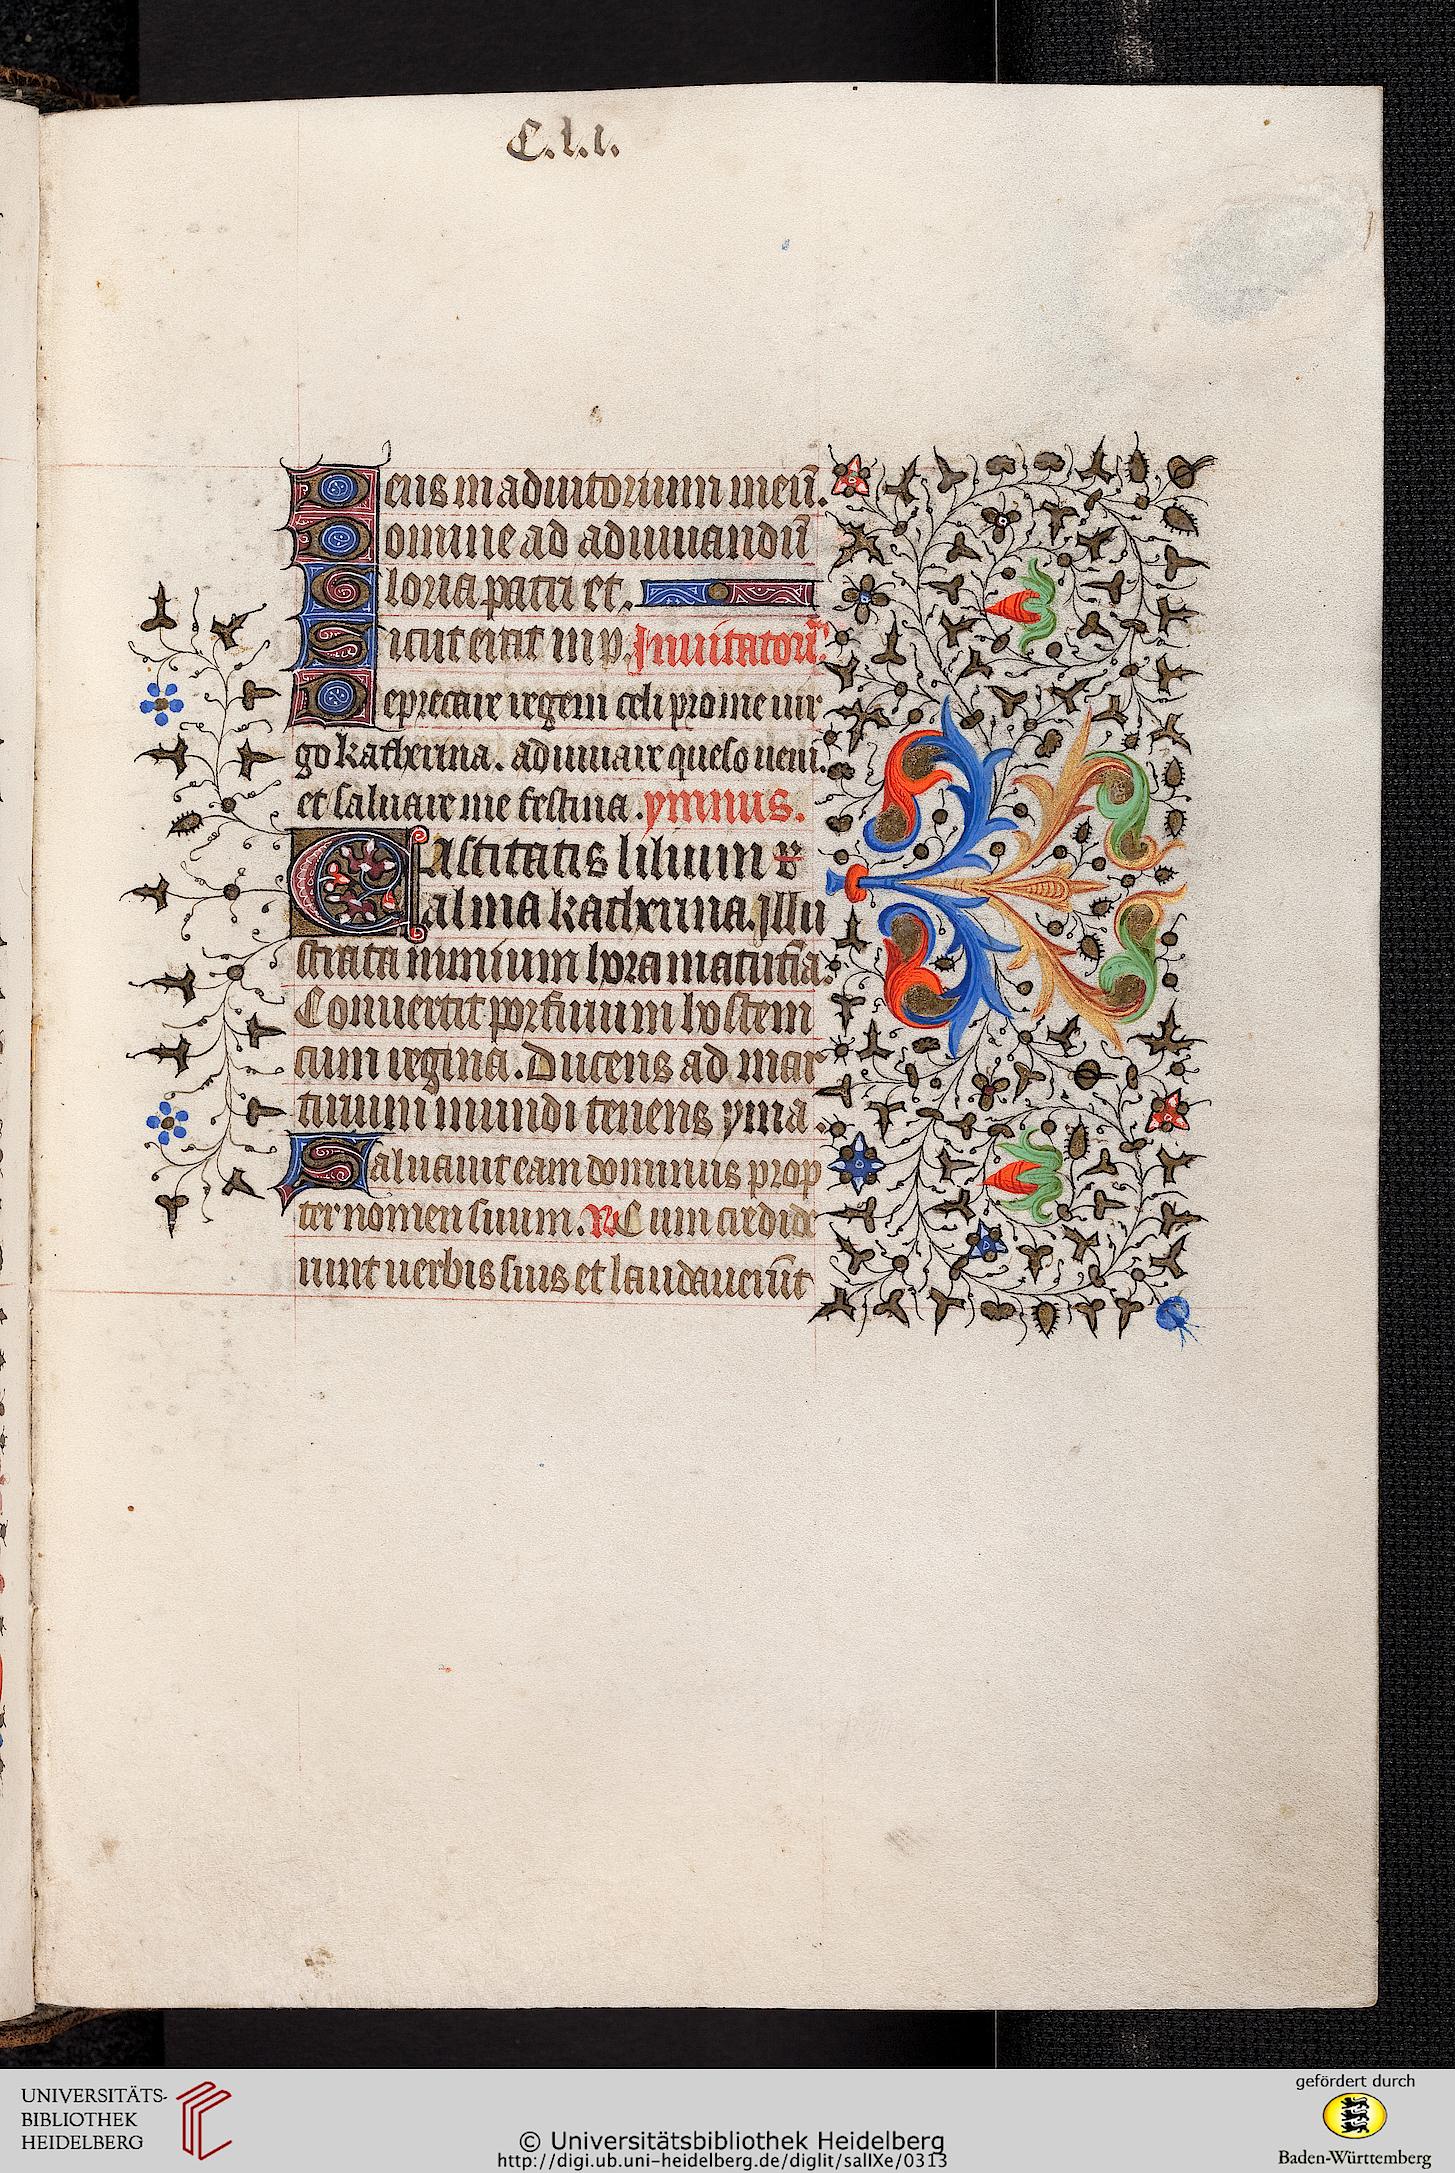 C.l.i.
Deus in adiutorium meū.
Domine ad adiuuandū
Gloria patri et.
Sicut erat in p. Inuitatoriū.
Deprecare regem celi pro me uir
go katherina. adiuuare queso ueni.
et saluare me festina. ymnus.
Castitatis lilium
alma katherina. Illu
strata nimium hora matutīa.
Conuertit porfirium hostem
cum regina. Ducens ad mar
tirium mundi tenens yma.
Saluauit eam dominus prop
ter nomen suum. R Cum credide
runt uerbis suis et laudauerūt
UNIVERSITÄTS-
BIBLIOTHEK
HEIDELBERG
© Universitätsbibliothek Heidelberg
http://digi.ub.uni-heidelberg.de/diglit/salIXe/0313
gefördert durch
Baden-Württemberg